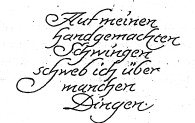 Auf meinen
handgemachten
Schwingen
schweb ich über
manchen
Dingen